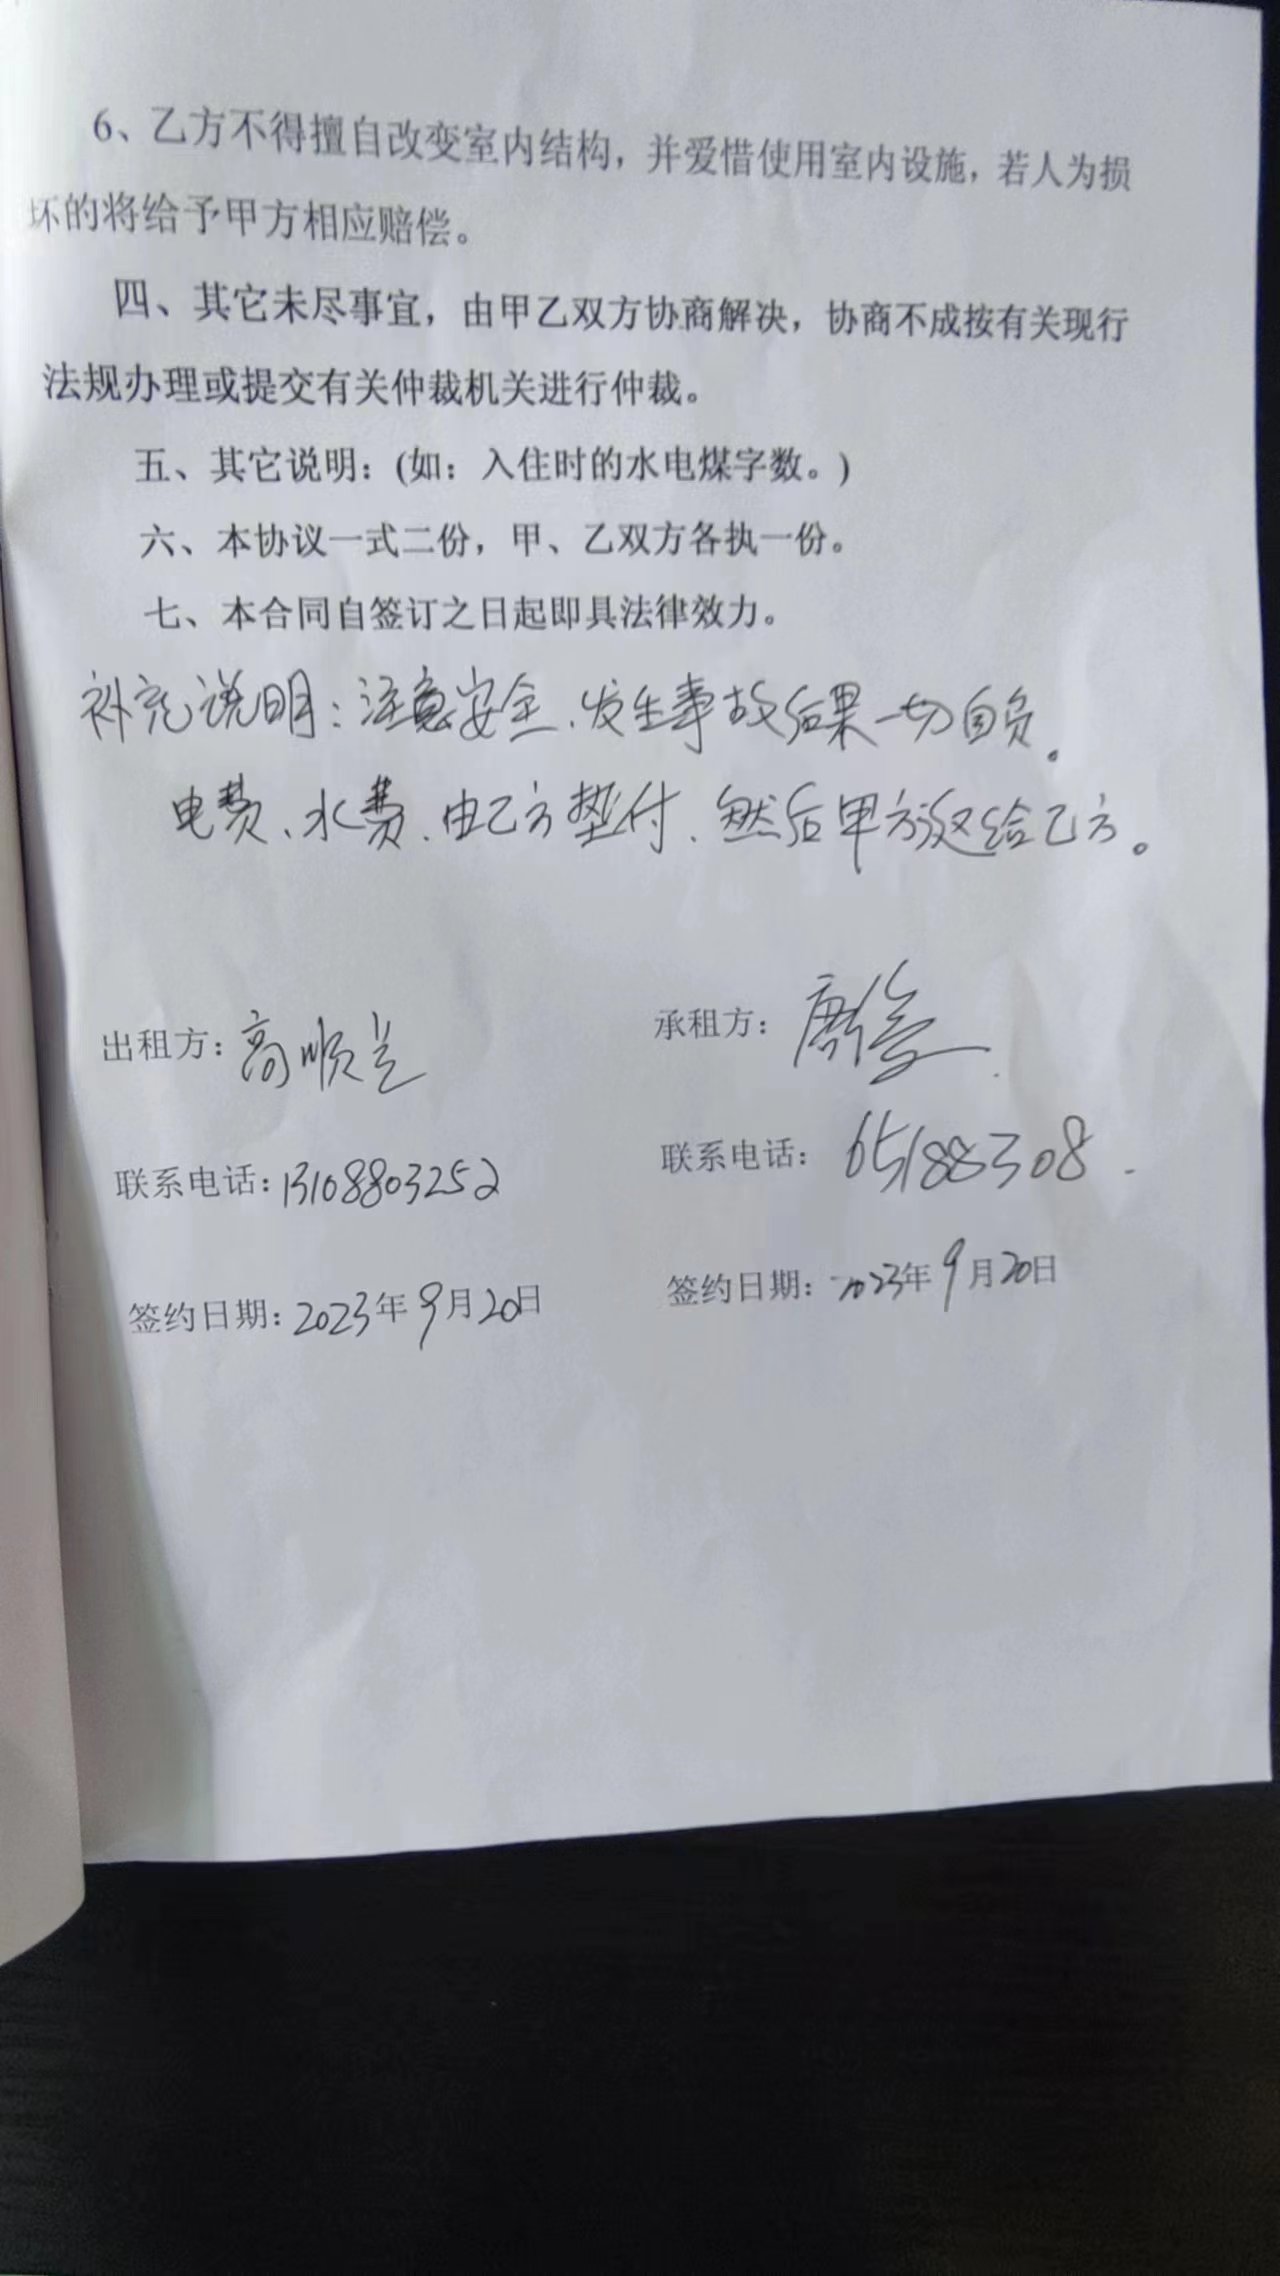 6、乙方不得擅自改变室内结构，并爱惜使用室内设施，若人为损
坏的将给予甲方相应赔偿。
四、其它未尽事宜，由甲乙双方协商解决，协商不成按有关现行
法规办理或提交有关仲裁机关进行仲裁。
五、其它说明：(如：入住时的水电煤字数。)
六、本协议一式二份，甲、乙双方各执一份。
七、本合同自签订之日起即具法律效力。
补充说明：注意安全、发生事故后果一切自负。
电费、水费、由乙方垫付、然后甲方返给乙方。
出租方：高顺兰 承租方：唐
联系电话：13108803252 联系电话：65188308
签约日期：2023年9月20日 签约日期：2023年9月20日